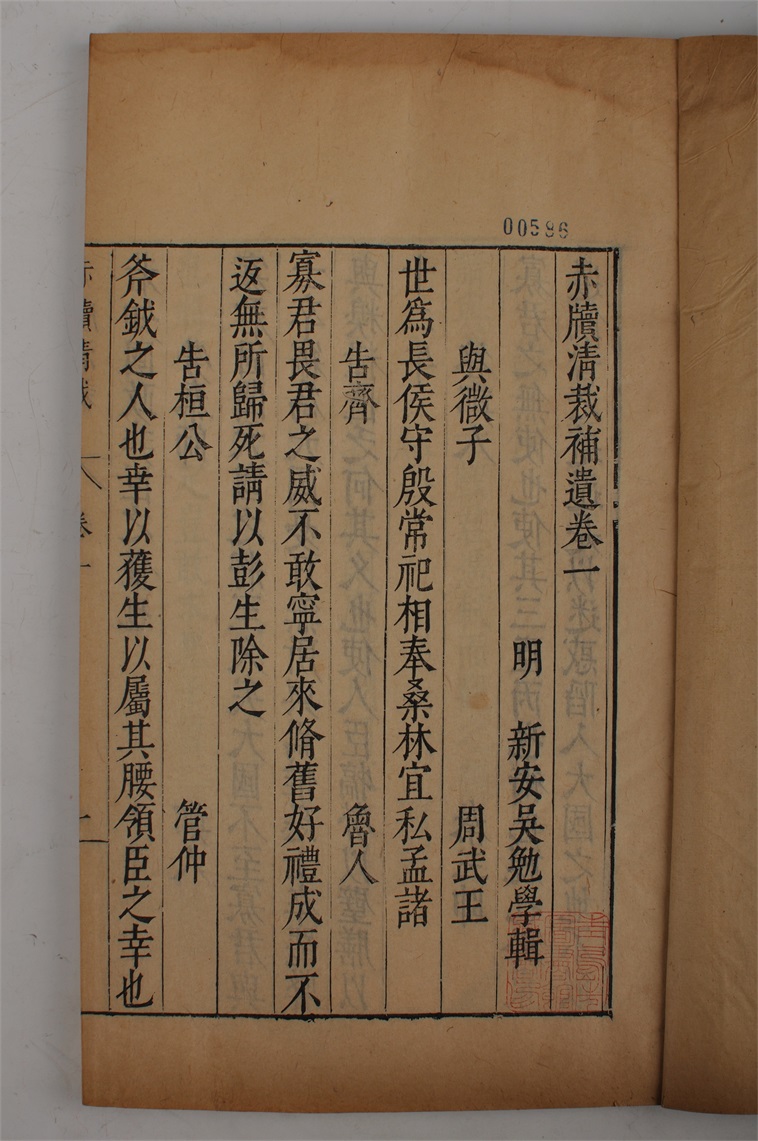 00596
赤牘淸裁補遺卷一
明 新安吳勉學輯
與微子 周武王
世爲長侯守殷常祀相奉桑林宜私孟諸
告齊 魯人
寡君畏君之威不敢寧居來脩舊好禮成而不
返無所歸死請以彭生除之
告桓公 管仲
斧鉞之人也幸以獲生以屬其腰領臣之幸也